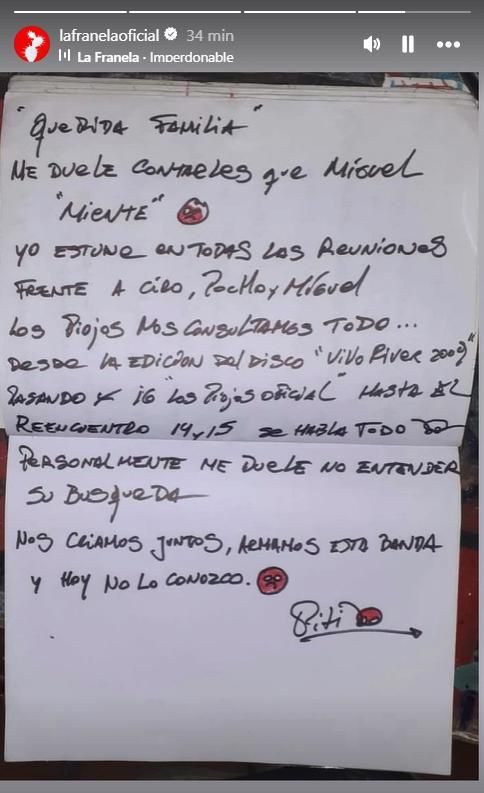 lafranelaoficial 34 min
La Franela · Imperdonable
"QUERIDA FAMILIA"
ME DUELE CONTARLES que MIGUEL
"MIENTE"
YO ESTUVE EN TODAS LAS REUNIONES
FRENTE A CIRO, POCHO y MIGUEL
LOS PIOJOS NOS CONSULTAMOS TODO...
DESDE LA EDICION DEL DISCO "VIVO RIVER 2009"
PASANDO X IG "LOS PIOJOS OFICIAL" HASTA EL
REENCUENTRO 14 y 15 se HABLA TODO
PERSONALMENTE ME DUELE NO ENTENDER
SU BUSQUEDA
NOS CRIAMOS JUNTOS, ARMAMOS ESTA BANDA
Y HOY NO LO CONOZCO.
Piti